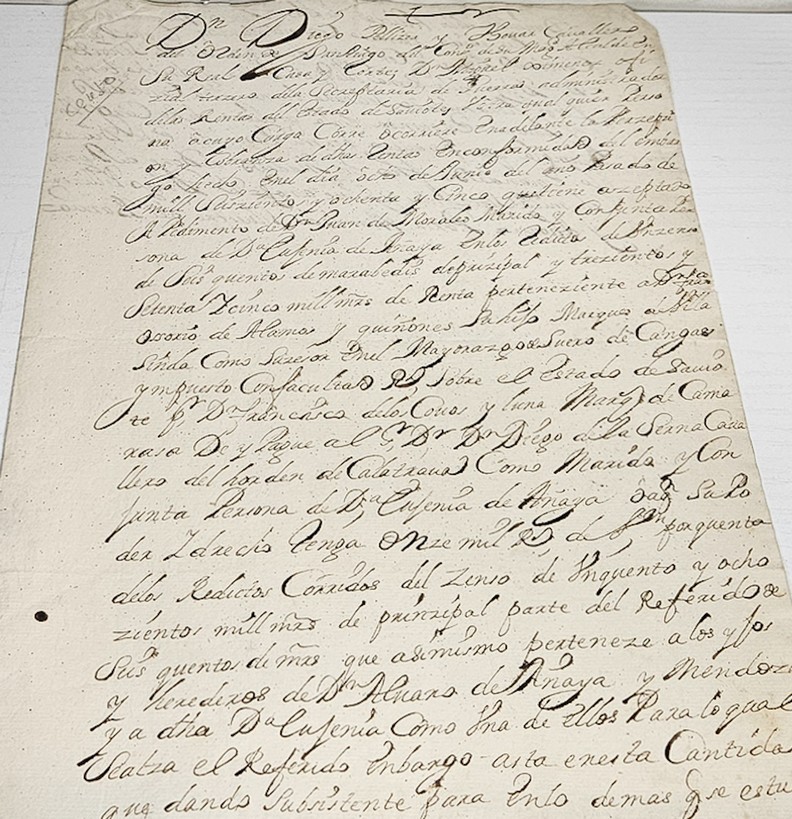 Dn Diego Pellizer y Bouar Cauallero
del Orden de Santiago del Consº de su Magd Alcalde de
Su Real Casa y Corte; Dn Ximenez ofi
zial terzero dela Secretaria de Guerra administrador
delas Rentas del Estado de Sauiote, Votra qual quier Perso
na a cuyo Cargo Corre ocorriere Enadelante la Perzepzi
on y Cobranza de dhas Rentas En conformidad del embar
go hecho Enel dia ocho de Junio del año Pasado de
mill Seiszientos y ochenta y Cinco que tiene azeptado
A Pedimento de Dn Juan de Morales Marido y Conjunta Per
sona de Da Eusenia de Anaya Enlos Reditos de Vnzenso
de Seis quentos de marabedis de prinzipal y trezientos y
Setenta Zcinco mill mrs de Renta perteneziente a Dn
osorio de Alamos y quiñones Su hijo Marques de Villa
sinda Como Suzesor Enel Mayorazgo de Suero de Cangas
ympuesto Con facultad Rl Sobre el Estado de Sauio
te pr Dn Francisco delos Couos y luna Marqs de Cama
rasa De y Pague al Sr Dr Dn Diego de la Serna Caua
llero del horden de Calatraua Como Marido y Con
Junta Persona de Da Eusenia de Anaya oaqn Su Po
der Zdrecho tenga onze mil Rs de Vn por quenta
delos Redictos Corridos del Zenso de Vnquento y ocho
zientos mill mrs de prinzipal parte del Referido de
Seis quentos de mrs que asimismo perteneze alos yjos
y herederos de Dn Aluaro de Anaya y Mendoza
y a dha Da Eusenia Como Vna de Ellos Para lo qual
Sealza el Referido Enbargo asta enesta Cantida
que dando Subsistente para Enlo demas qse estu